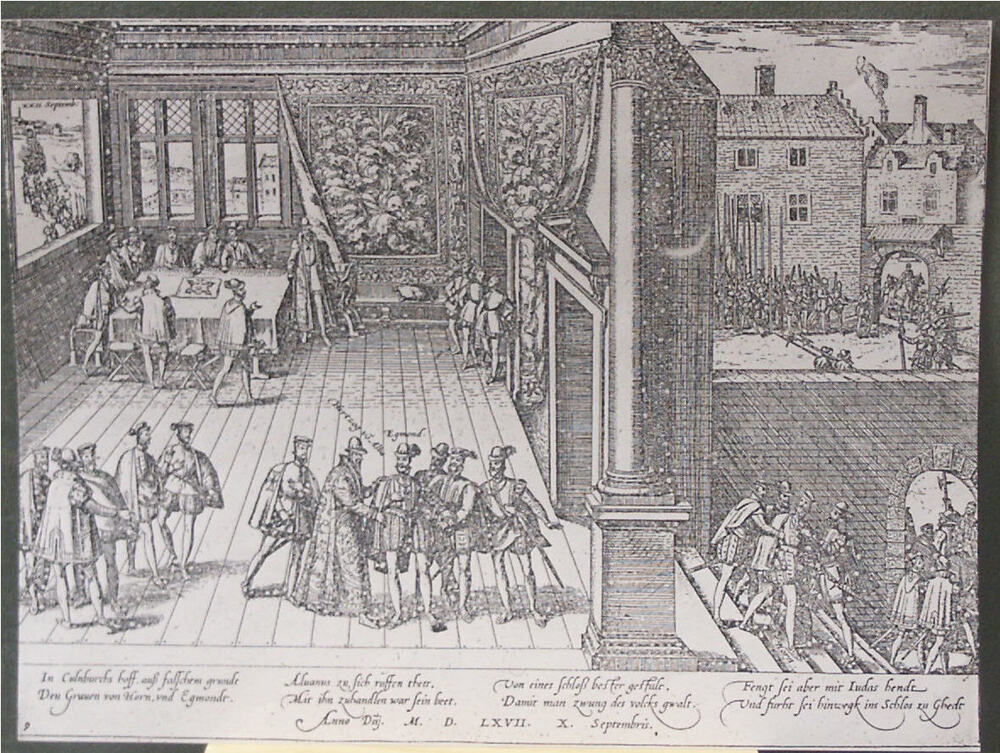 XXII Septemb.
Hertzog vō Alb
Egmond.
In Culnburchs hoff auß falschem grundt
Den Grauen von Horn, vnd Egmondt.
Aluanus zu sich ruffen thett.
Mit ihn zuhandlen war sein bett.
Von eines schloß bester gestalt.
Damit man zwung des volcks gwalt.
Fengt sei aber mit Iudas hendt
Vnd furht sei hinwegk ins Schlos zu Ghedt
Anno Dñj. M. D. LXVII. X. Septembris.
9